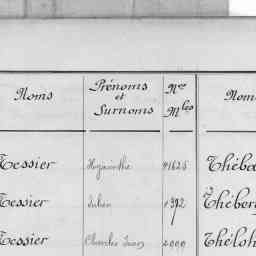 Noms Prénoms et Surnoms Nos Mles Noms
Tessier Hyacinthe 41625
Tessier Julien 1372
Tessier Charles 2000